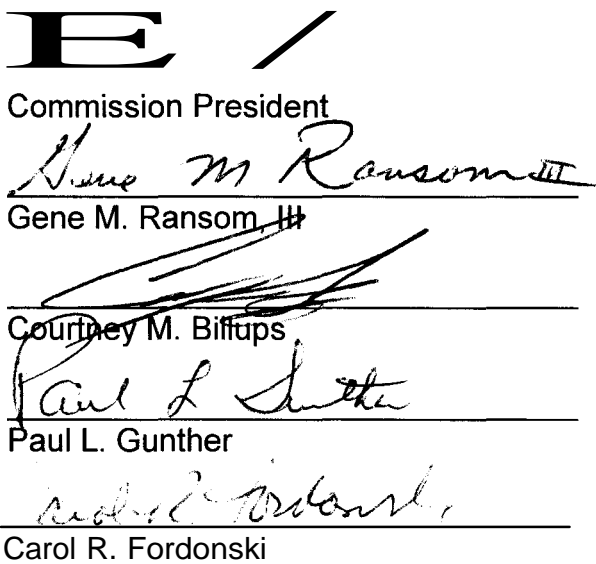 E /
Commission President
Gene M Ransom III
Gene M. Ransom, III
Courtney M. Billups
Paul L Gunther
Paul L. Gunther
Carol R. Fordonski
Carol R. Fordonski